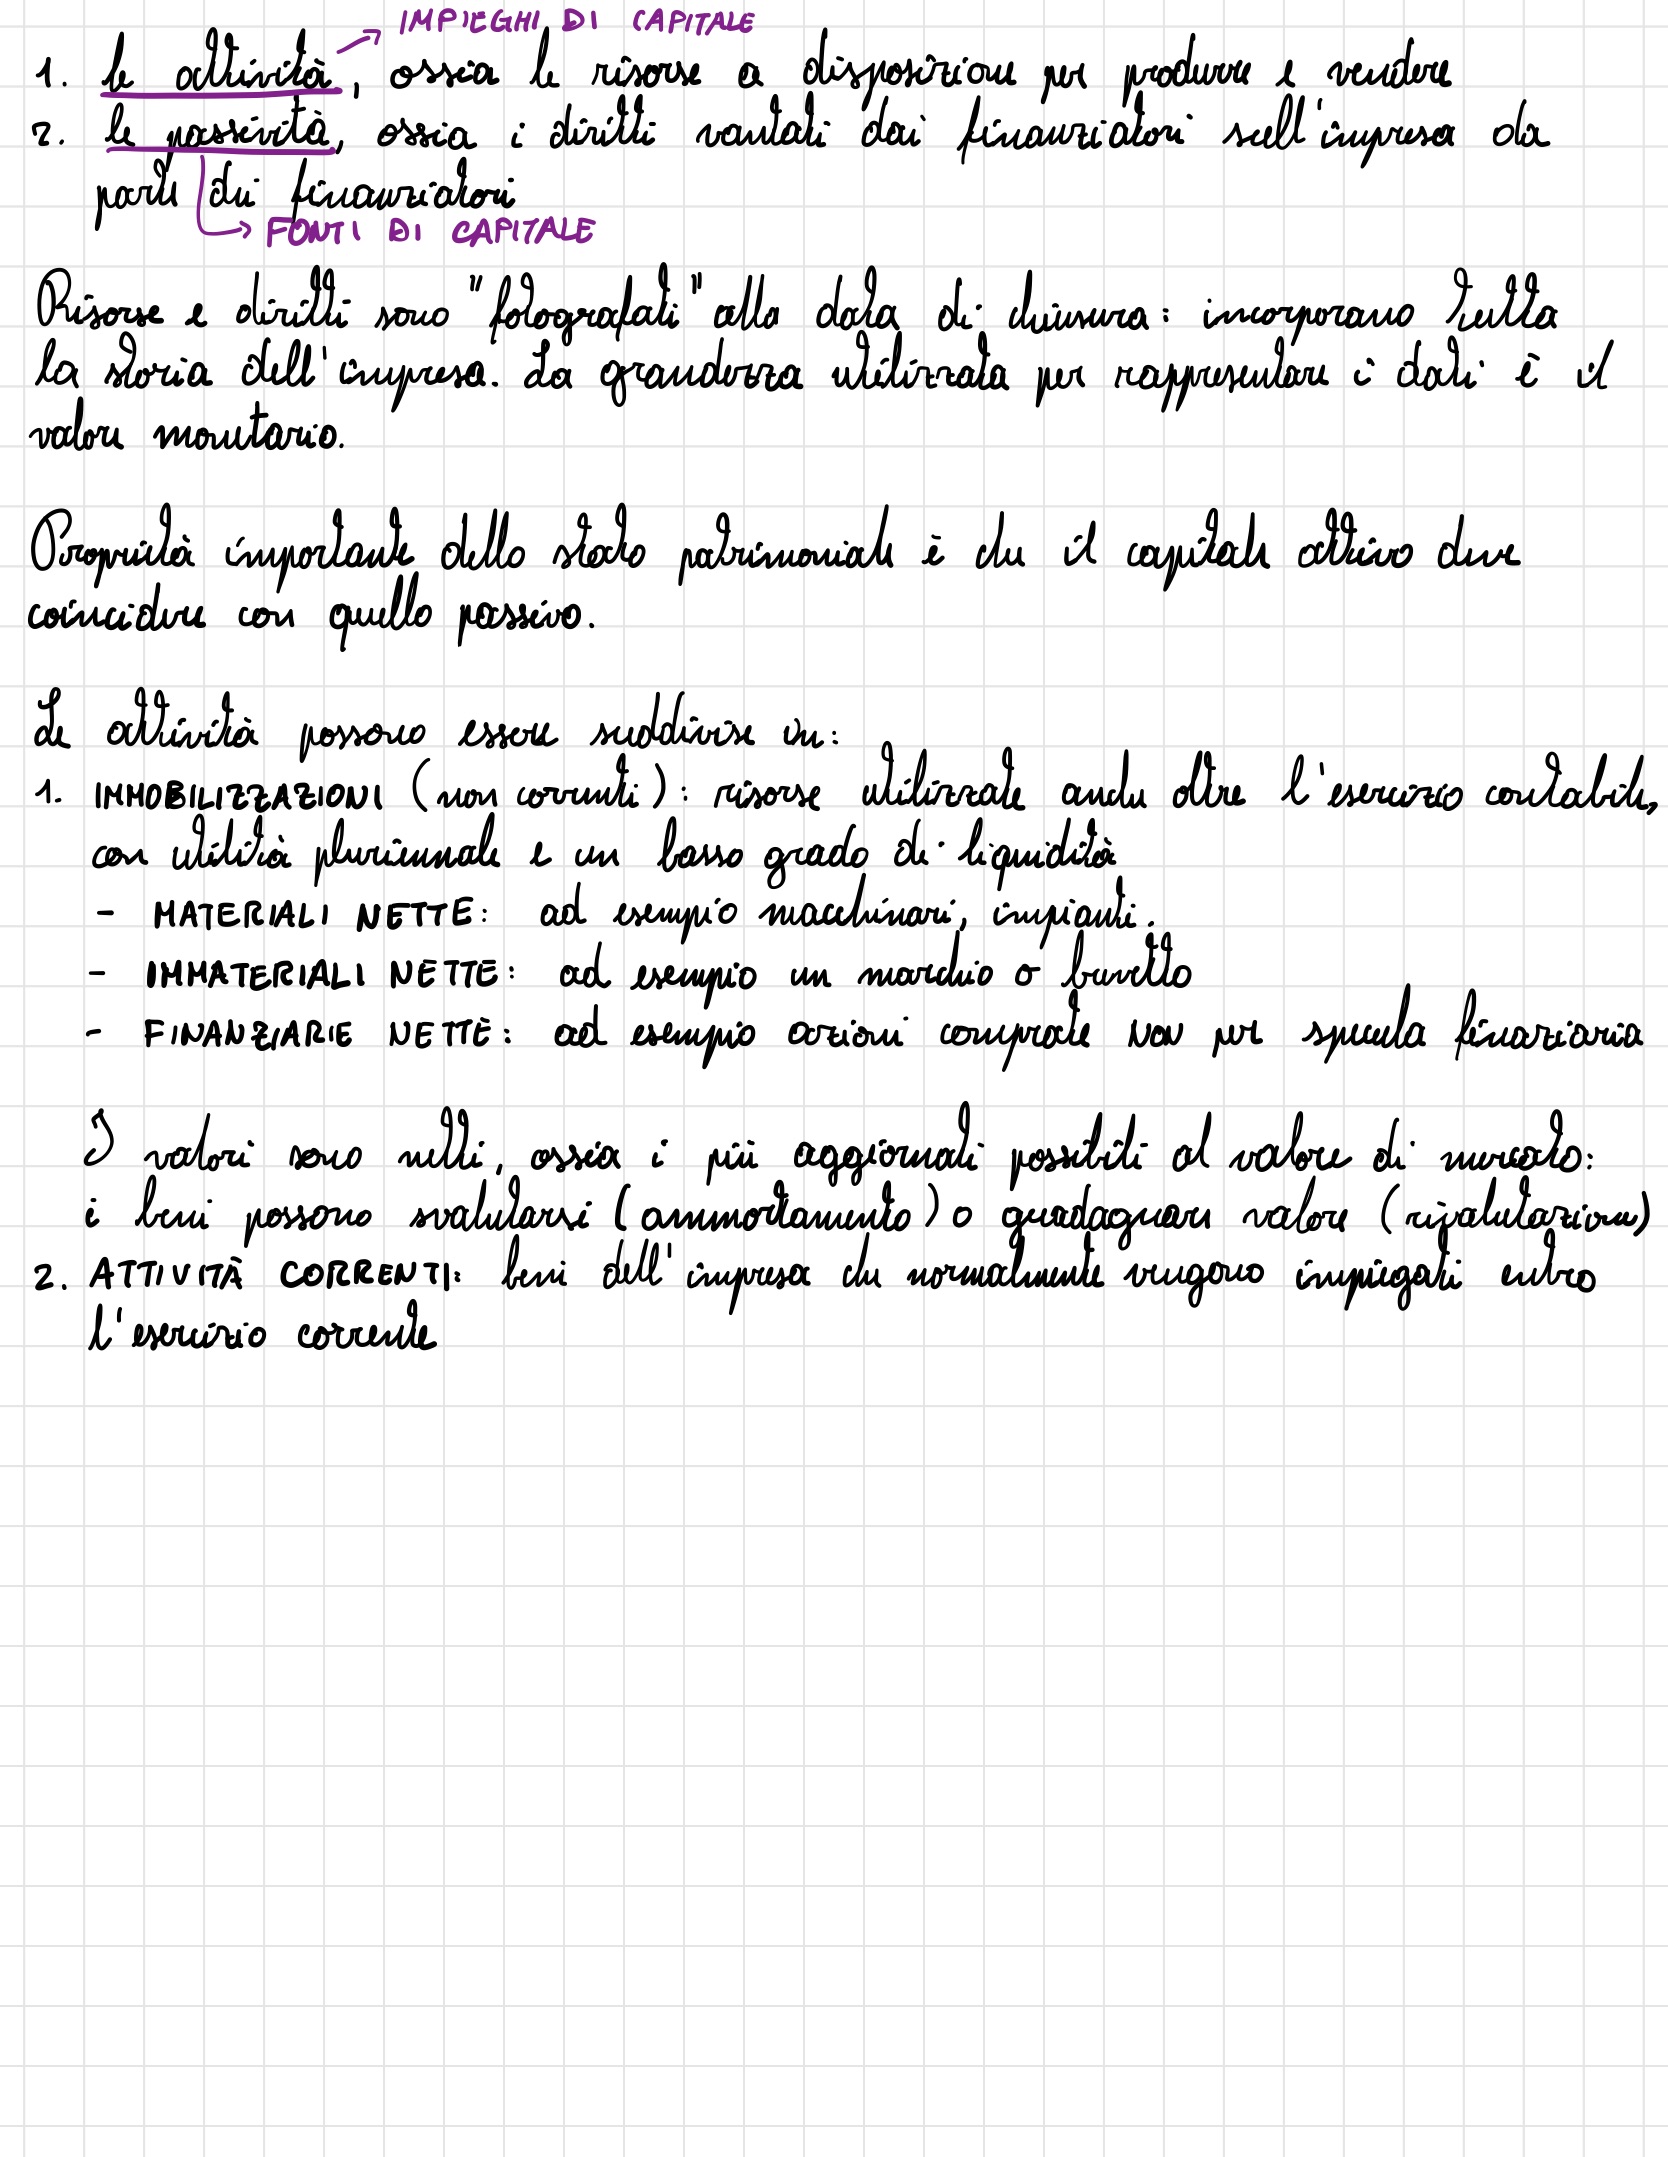 IMPIEGHI DI CAPITALE
1. le attività, ossia le risorse a disposizione per produrre e vendere
2. le passività, ossia i diritti vantati dai finanziatori sull'impresa da
parte dei finanziatori
FONTI DI CAPITALE
Risorse e diritti sono "fotografati" alla data di chiusura: incorporano tutta
la storia dell'impresa. La grandezza utilizzata per rappresentare i dati è il
valore monetario.
Proprietà importante dello stato patrimoniale è che il capitale attivo deve
coincidere con quello passivo.
Le attività possono essere suddivise in:
1. IMMOBILIZZAZIONI (non correnti): risorse utilizzate anche oltre l'esercizio contabile,
con utilità pluriennale e un basso grado di liquidità
- MATERIALI NETTE: ad esempio macchinari, impianti.
- IMMATERIALI NETTE: ad esempio un marchio o brevetto
- FINANZIARIE NETTE: ad esempio azioni comprate NON per specula finaziaria
I valori sono netti, ossia i più aggiornati possibili al valore di mercato:
i beni possono svalutarsi (ammortamento) o guadagnare valore (rivalutazione)
2. ATTIVITÀ CORRENTI: beni dell'impresa che normalmente vengono impiegati entro
l'esercizio corrente